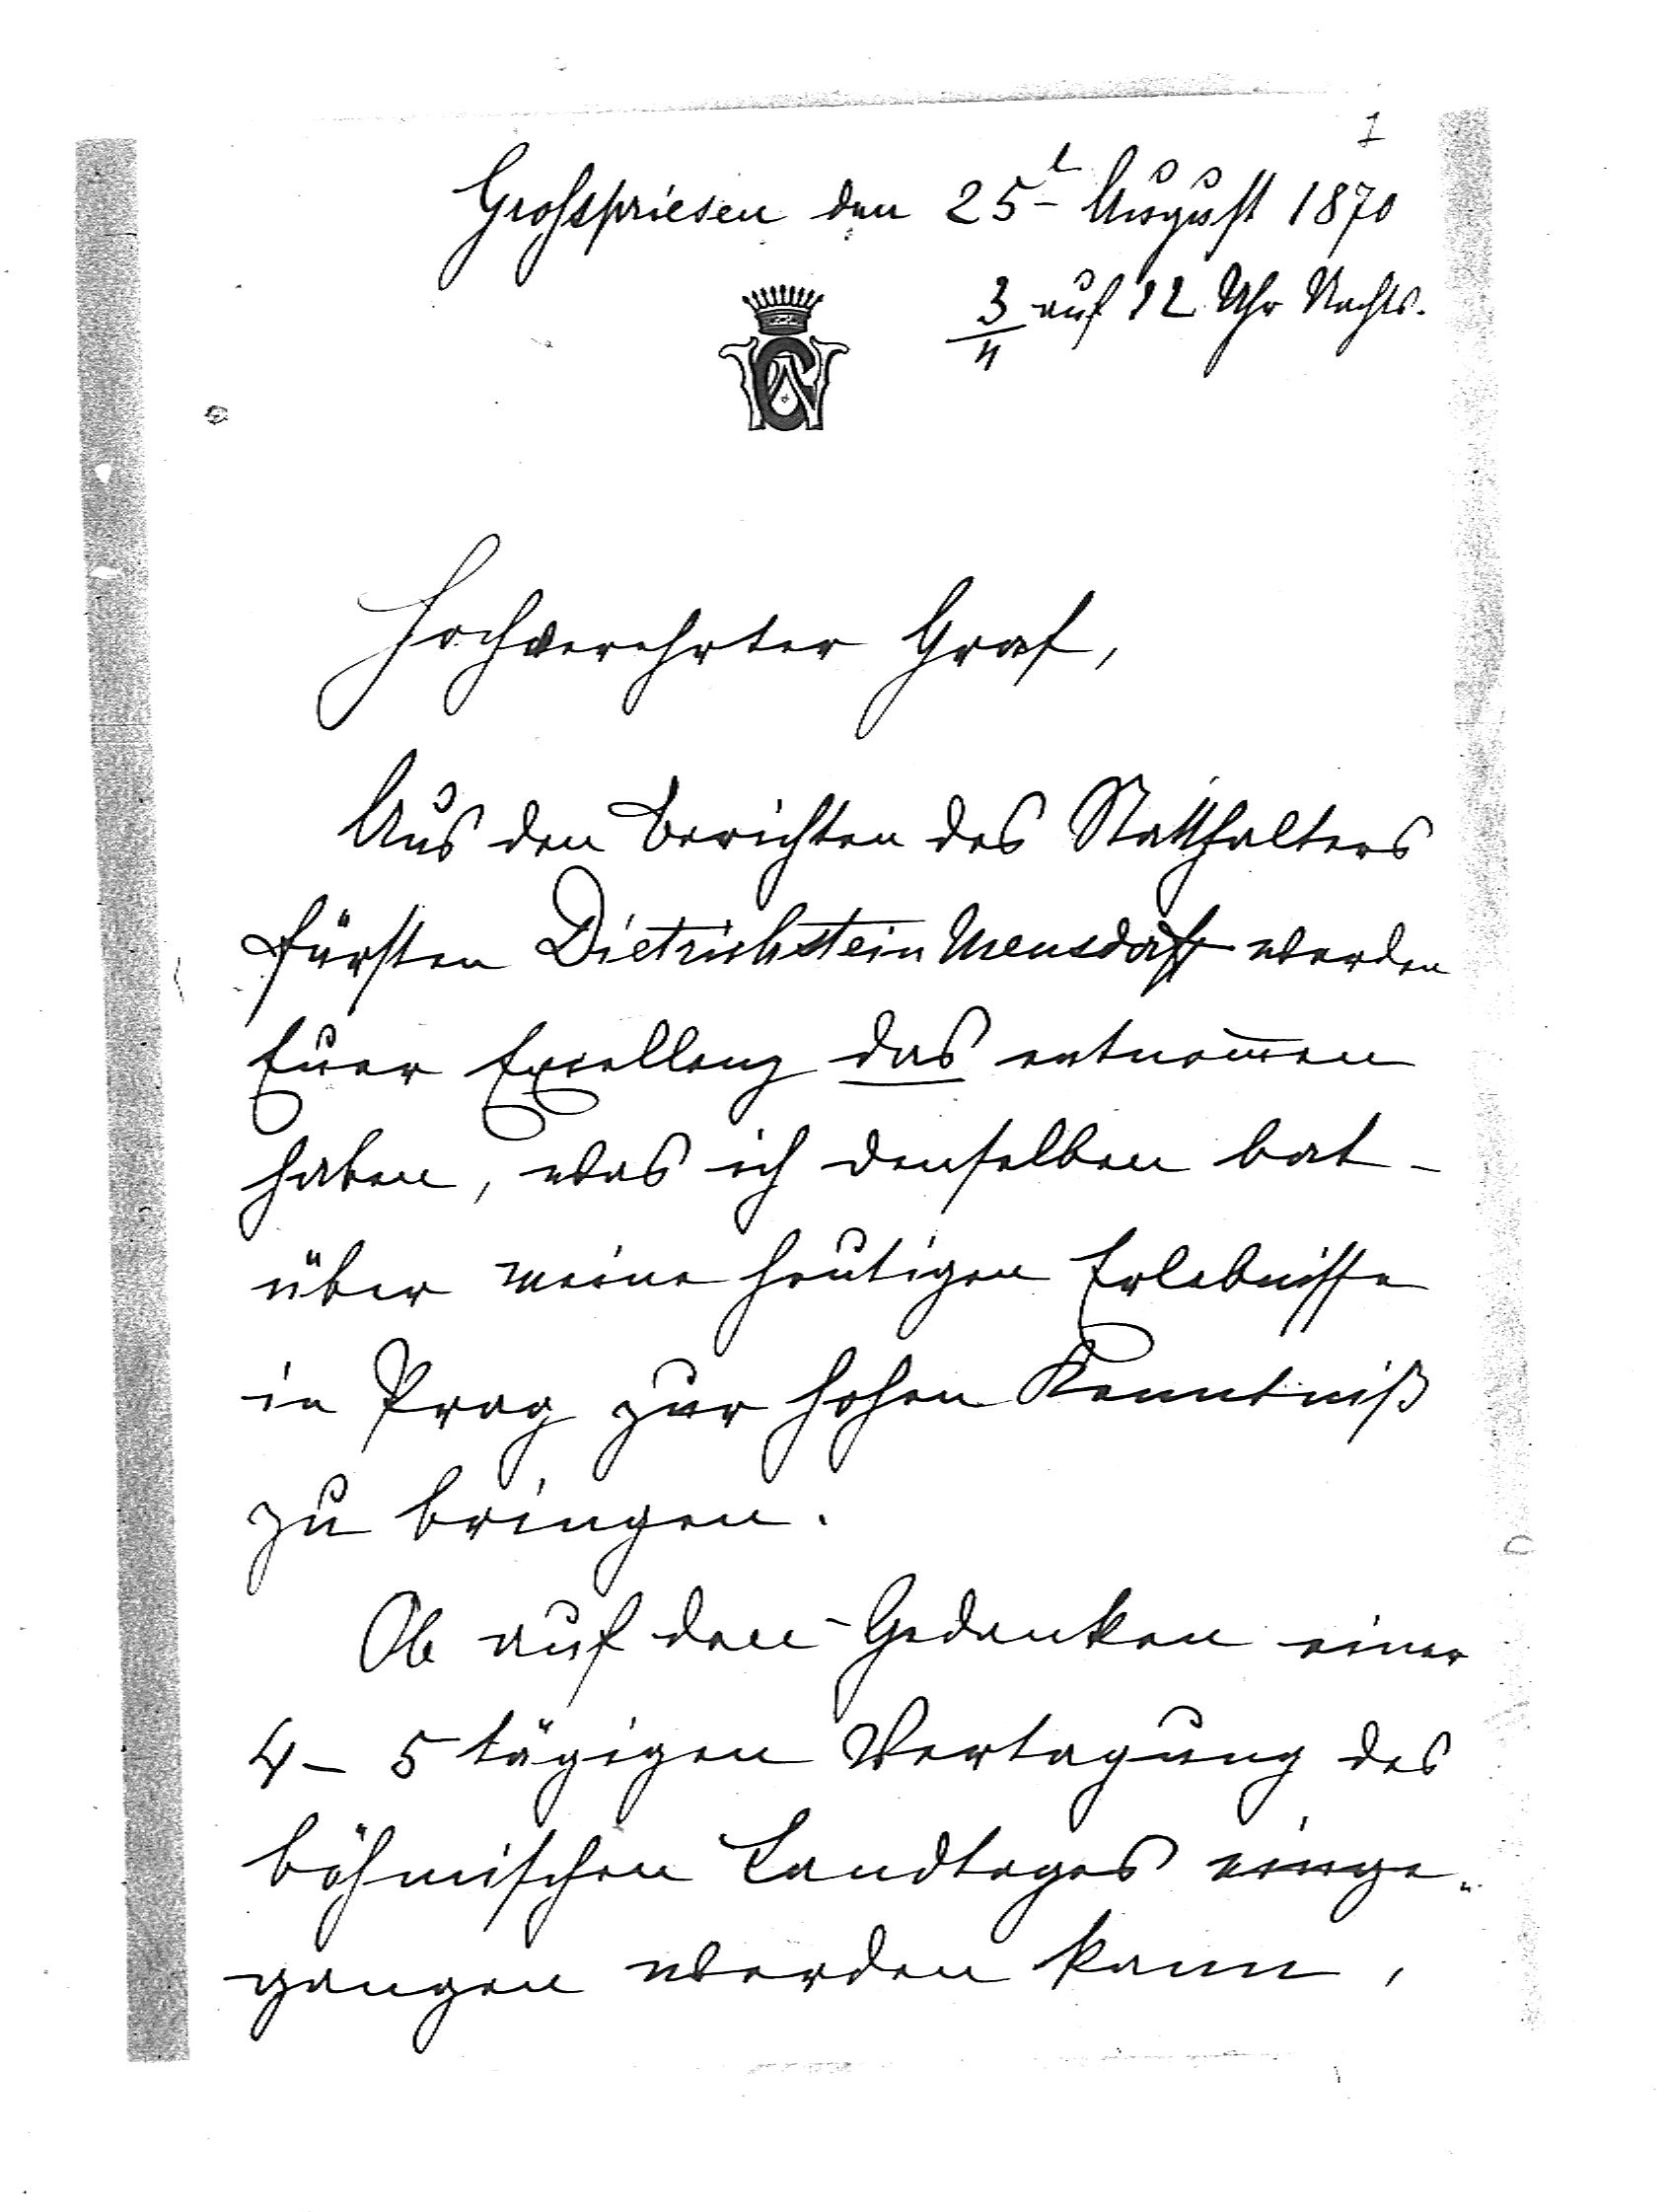 1
Grosspriesen den 25t August 1870
3/4 auf 12 Uhr Nachts.
Hochverehrter Graf,
Aus den Berichten des Statthalters
Fürsten Dietrichstein Mensdorff werden
Euer Excellenz das entnom̄en
haben, was ich denselben bat –
über meine heutigen Erlebnisse
in Prag zur hohen Kenntniß
zu bringen.
Ob auf den Gedanken einer
4 – 5 tägigen Vertagung des
böhmischen Landtages einge„
gangen werden kann,